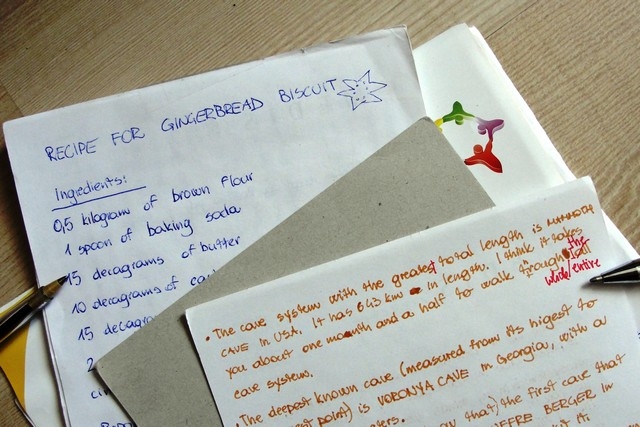 RECIPE FOR GINGERBREAD BISCUIT
Ingredients:
0,5 kilogram of brown flour
1 spoon of baking soda
15 decagrams of butter
10 decagrams of
15
2
• The cave system with the greatest total length is MAMMOTH
CAVE in USA. It has 643 km in length. I think it takes
you about one month and a half to walk through the
whole/entire
cave system.
• The deepest known cave (measured from its higest to
point) is VORONYA CAVE in Georgia, with a
that) the first cave that
BERGER IN